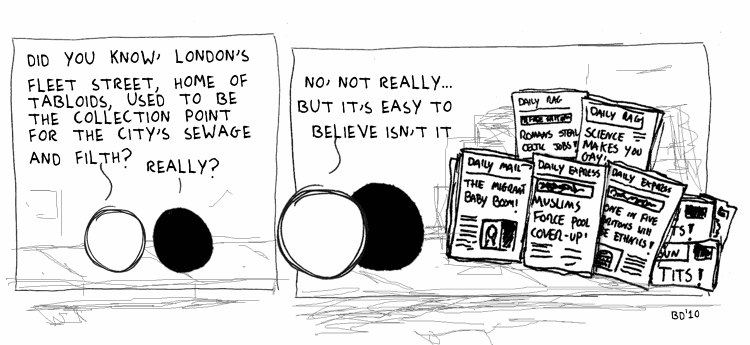 DID YOU KNOW, LONDON'S
FLEET STREET, HOME OF
TABLOIDS, USED TO BE
THE COLLECTION POINT
FOR THE CITY'S SEWAGE
AND FILTH?
REALLY?
NO, NOT REALLY...
BUT IT'S EASY TO
BELIEVE ISN'T IT
DAILY RAG
ROMANS STEAL
CELTIC JOBS!
DAILY RAG
SCIENCE
MAKES YOU
GAY!
DAILY MAIL
THE MIGRANT
BABY BOOM!
DAILY EXPRESS
MUSLIMS
FORCE POOL
COVER-UP!
DAILY EXPRESS
ONE IN FIVE
BRITONS WILL
BE ETHNICS!
TITS!
SUN
TITS!
BD'10